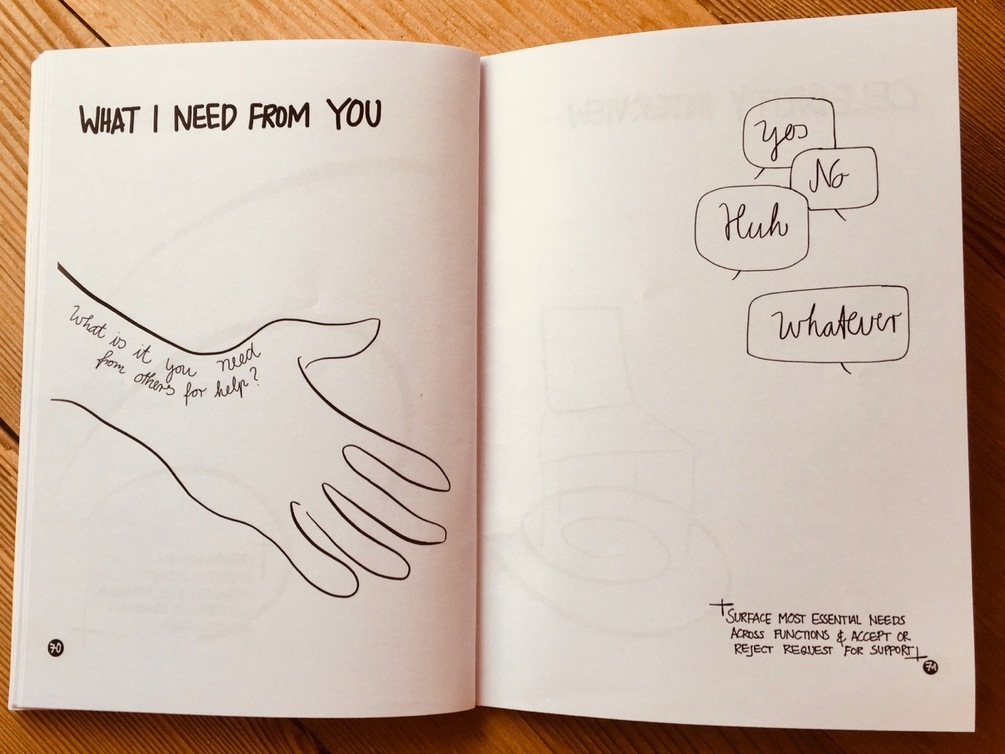 WHAT I NEED FROM YOU
What is it you need
from others for help?
70
CELEBRITY INTERVIEW
Yes
No
Huh
Whatever
SURFACE MOST ESSENTIAL NEEDS
ACROSS FUNCTIONS & ACCEPT OR
REJECT REQUEST FOR SUPPORT
71